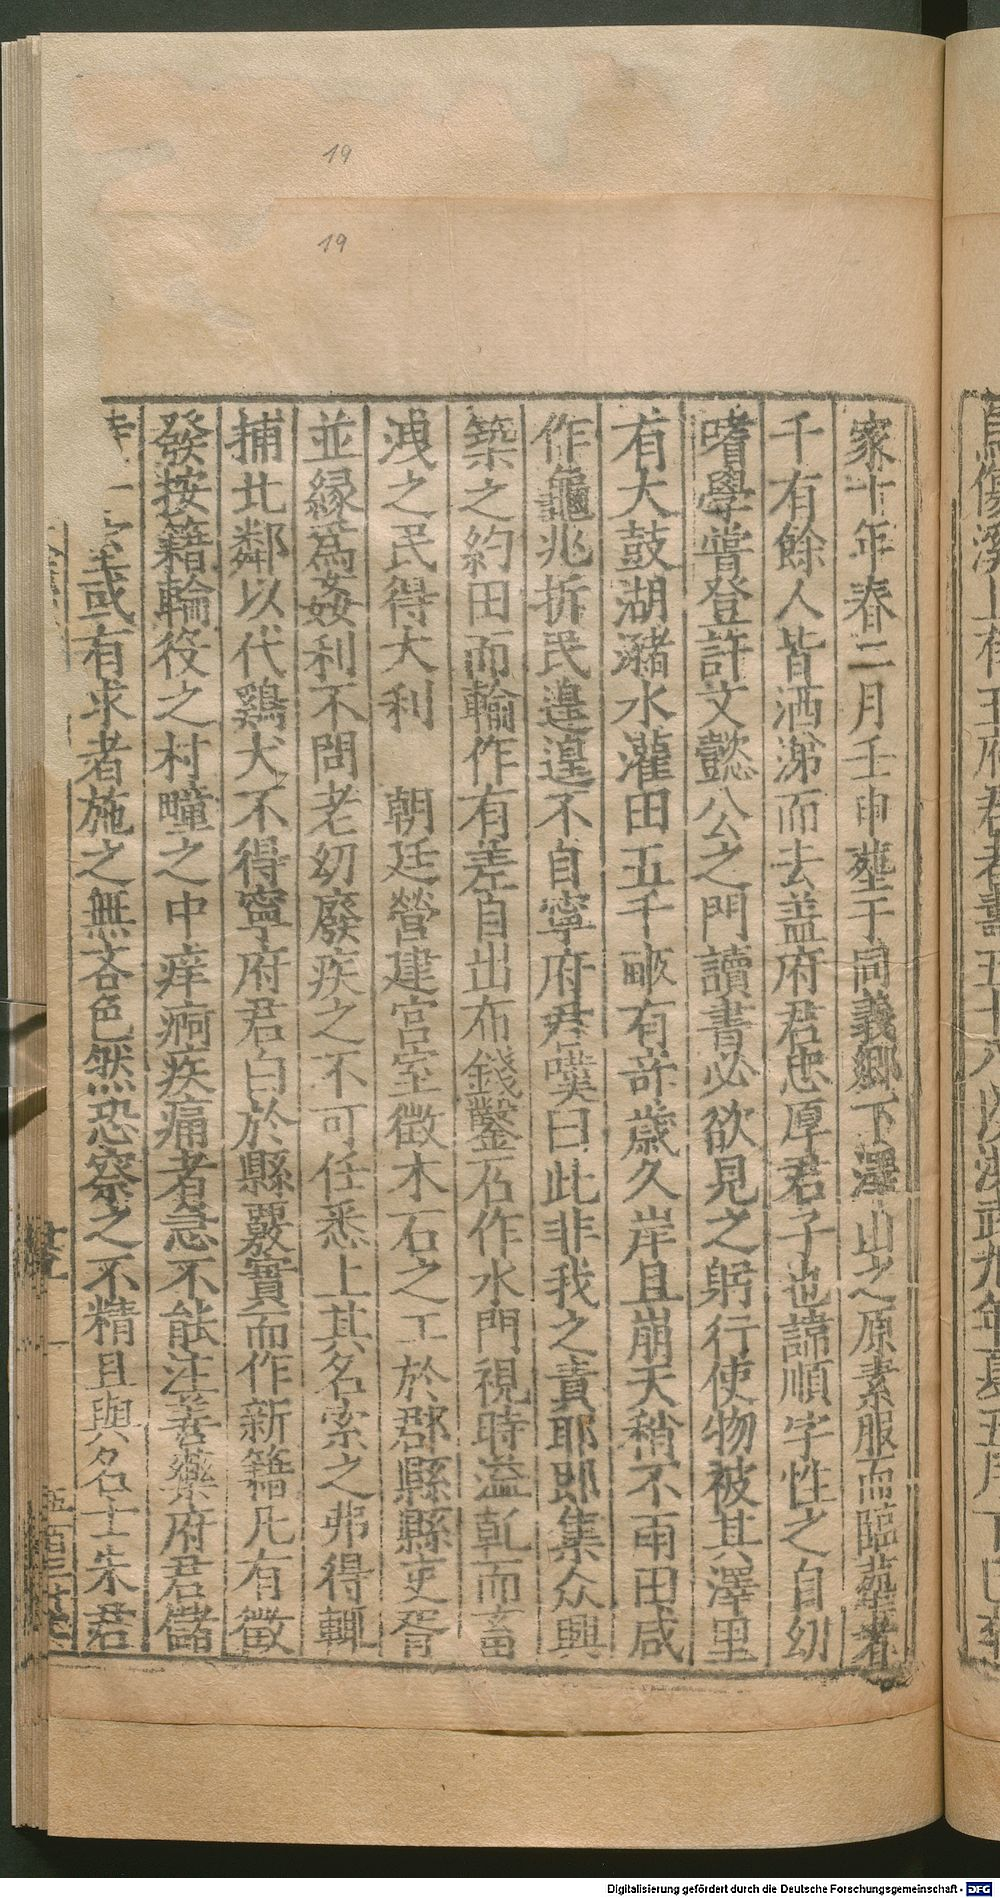 19
19
家十年春二月壬申塟于同義鄉下澤山之原素服而臨塟者
千有餘人皆洒涕而去盖府君忠厚君子也諱順字性之自幼
嗜學嘗登許文懿公之門讀書必欲見之躬行使物被其澤里
有大鼓湖瀦水灌田五千畝有竒歲久岸且崩天稍不雨田咸
作龜兆拆民遑遑不自寧府君嘆曰此非我之責耶即集众興
築之約田而輸作有差自出布錢鑿石作水門視時溢乾而畜
洩之民得大利　朝廷營建宮室徵木石之工於郡縣縣吏胥
並緣爲姦利不問老幼廢疾之不可任悉上其名索之弗得輒
捕比鄰以代鷄犬不得寧府君白於縣覈實而作新籍凡有徵
發按籍輪役之村疃之中痒痾疾痛者急不能注善藥府君儲
一室或有求者施之無吝色然恐察之不精且與名士朱君
Digitalisierung gefördert durch die Deutsche Forschungsgemeinschaft - DFG